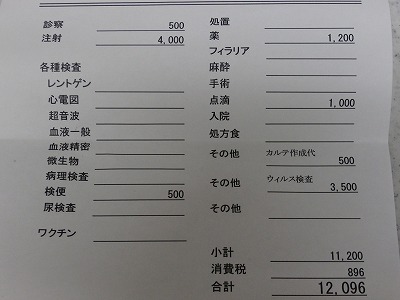 診察 500
注射 4,000
各種検査
レントゲン
心電図
超音波
血液一般
血液精密
微生物
病理検査
検便 500
尿検査
ワクチン
処置
薬 1,200
フィラリア
麻酔
手術
点滴 1,000
入院
処方食
その他 カルテ作成代
500
その他 ウィルス検査
3,500
その他
小計 11,200
消費税 896
合計 12,096